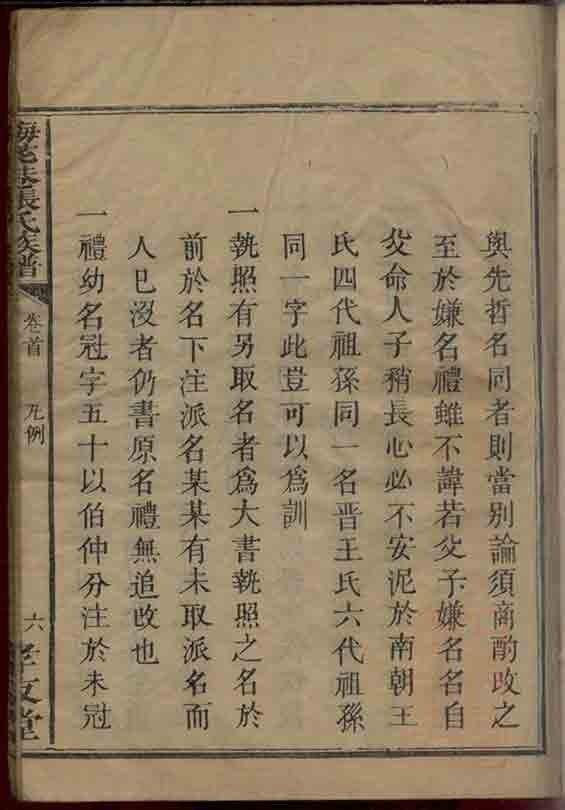 與先哲名同者則當別論須商酌改之
至於嫌名禮雖不諱若父子嫌名名自
父命人子稍長心必不安況於南朝王
氏四代祖孫同一名晋王氏六代祖孫
同一字此豈可以爲訓
一執照有另取名者爲大書執照之名於
前於名下注派名某某有未取派名而
人已沒者仍書原名禮無追改也
一禮幼名冠字五十以伯仲分注於未冠
張氏族譜
卷首
凡例
六
堂